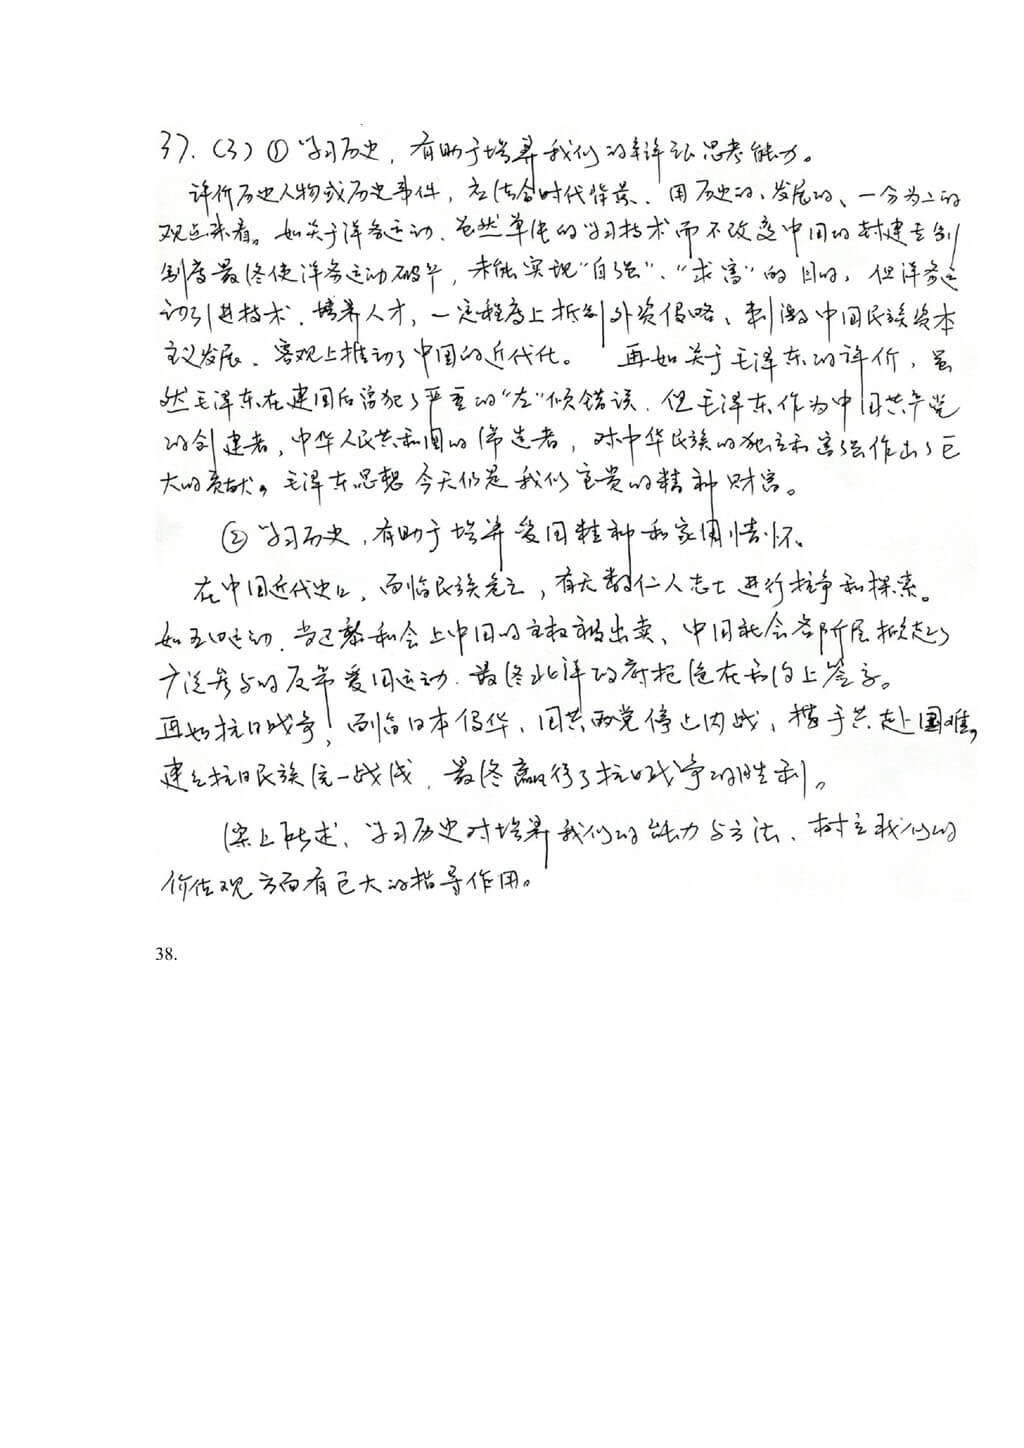 37.(3)①学习历史，有助于培养我们的辩证思考能力。
评价历史人物或历史事件，应结合时代背景、用历史的、发展的、一分为二的
观点来看。如关于洋务运动、虽然单纯的学习技术而不改变中国的封建专制
制度最终使洋务运动破产，未能实现“自强”、“求富”的目的，但洋务运
动引进技术、培养人才，一定程度上抵制外资侵略、刺激中国民族资本
主义发展、客观上推动了中国的近代化。 再如关于毛泽东的评价，虽
然毛泽东在建国后曾犯了严重的“左”倾错误、但毛泽东作为中国共产党
的创建者，中华人民共和国的缔造者，对中华民族的独立和富强作出了巨
大的贡献。毛泽东思想今天仍是我们宝贵的精神财富。
②学习历史，有助于培养爱国精神和家国情怀。
在中国近代史上，面临民族危亡，有无数仁人志士进行抗争和探索。
如五四运动、当巴黎和会上中国的主权被出卖、中国社会各阶层掀起了
广泛参与的反帝爱国运动、最终北洋政府拒绝在和约上签字。
再如抗日战争，面临日本侵华，国共两党停止内战，携手共赴国难，
建立抗日民族统一战线，最终赢得了抗日战争的胜利。
综上所述、学习历史对培养我们的能力与方法、树立我们的
价值观方面有巨大的指导作用。
38.